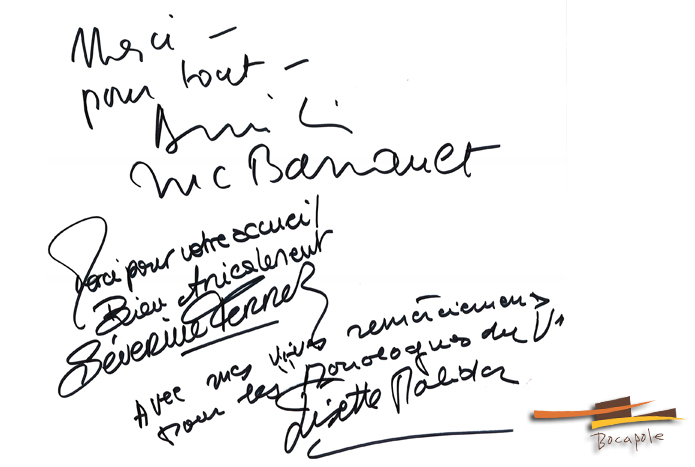 Merci -
pour tout -
Amiti
MC Barrault
Merci pour votre accueil
Bien Amicalement
Séverine Ferrer
Avec mes vives remerciements
pour les Monologues du V.
Lisette Malidor
Bocapole